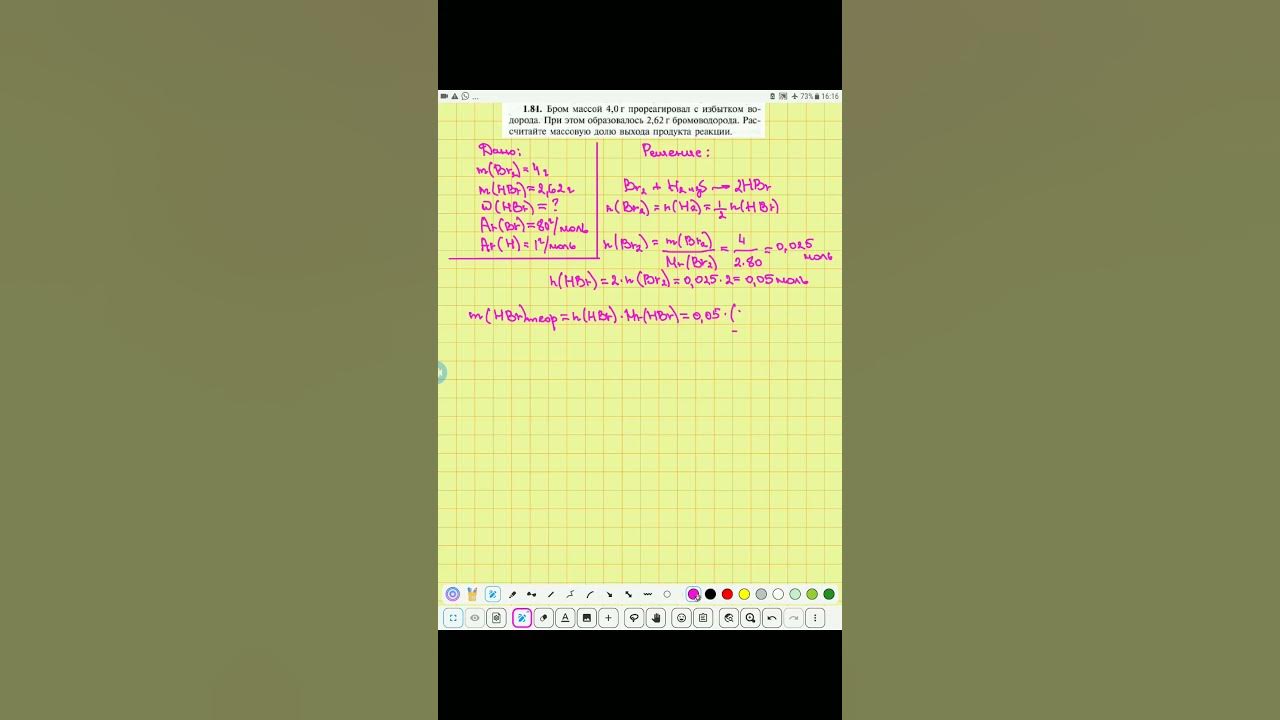 ... 73% 16:16
1.81. Бром массой 4,0 г прореагировал с избытком во-
дорода. При этом образовалось 2,62 г бромоводорода. Рас-
считайте массовую долю выхода продукта реакции.
Дано:
m(Br₂)=4г
m(HBr)=2,62г
ω(HBr)=?
Ar(Br)=80г/моль
Ar(H)=1г/моль
Решение:
Br₂ + H₂ изб → 2HBr
n(Br₂)=n(H₂)=1/2 n(HBr)
n(Br₂)=m(Br₂)/Mr(Br₂)=4/2·80=0,025 моль
n(HBr)=2·n(Br₂)=0,025·2=0,05моль
m(HBr)теор=n(HBr)·Mr(HBr)=0,05·(